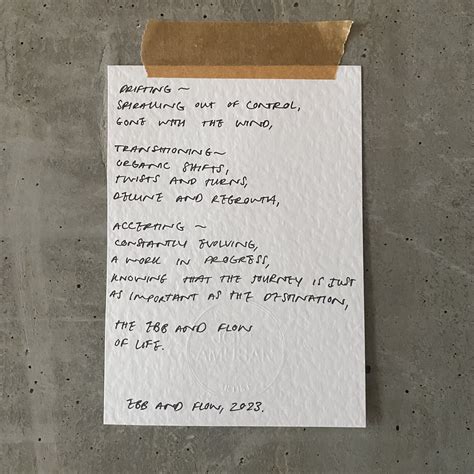 DRIFTING ~
SPIRALLING OUT OF CONTROL,
GONE WITH THE WIND,
TRANSITIONING ~
ORGANIC SHIFTS,
TWISTS AND TURNS,
DECLINE AND REGROWTH,
ACCEPTING ~
CONSTANTLY EVOLVING,
A WORK IN PROGRESS,
KNOWING THAT THE JOURNEY IS JUST
AS IMPORTANT AS THE DESTINATION,
THE EBB AND FLOW
OF LIFE.
EBB AND FLOW, 2023.